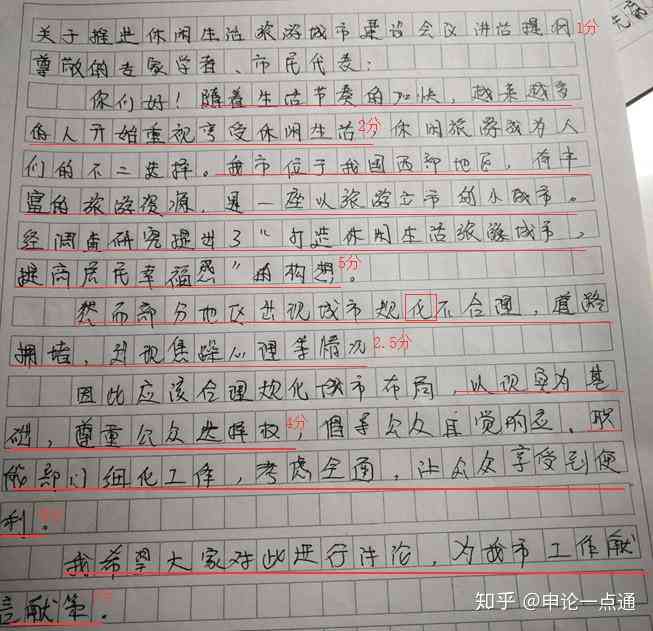 关于推进休闲生活旅游城市建设会议讲话提纲 1分
尊敬的专家学者、市民代表：
你们好！随着生活节奏的加快，越来越多
的人开始重视享受休闲生活，2分 休闲旅游成为人
们的不二选择。我市位于我国西部地区，有丰
富的旅游资源，是一座以旅游立市的小城市。
经调查研究提出了“打造休闲生活旅游城市，
提高居民幸福感”的构想。5分
然而部分地区出现城市规化不合理，道路
拥堵，出现焦躁心理等情况 2.5分
因此应该合理规化城市布局，以现实为基
础，尊重公众选择权，4分 倡导公众自觉响应、职
能部门细化工作，考虑全通，让公众享受到便
利。
我希望大家对此进行讨论，为我市工作献
言献策。
知乎 @申论一点通